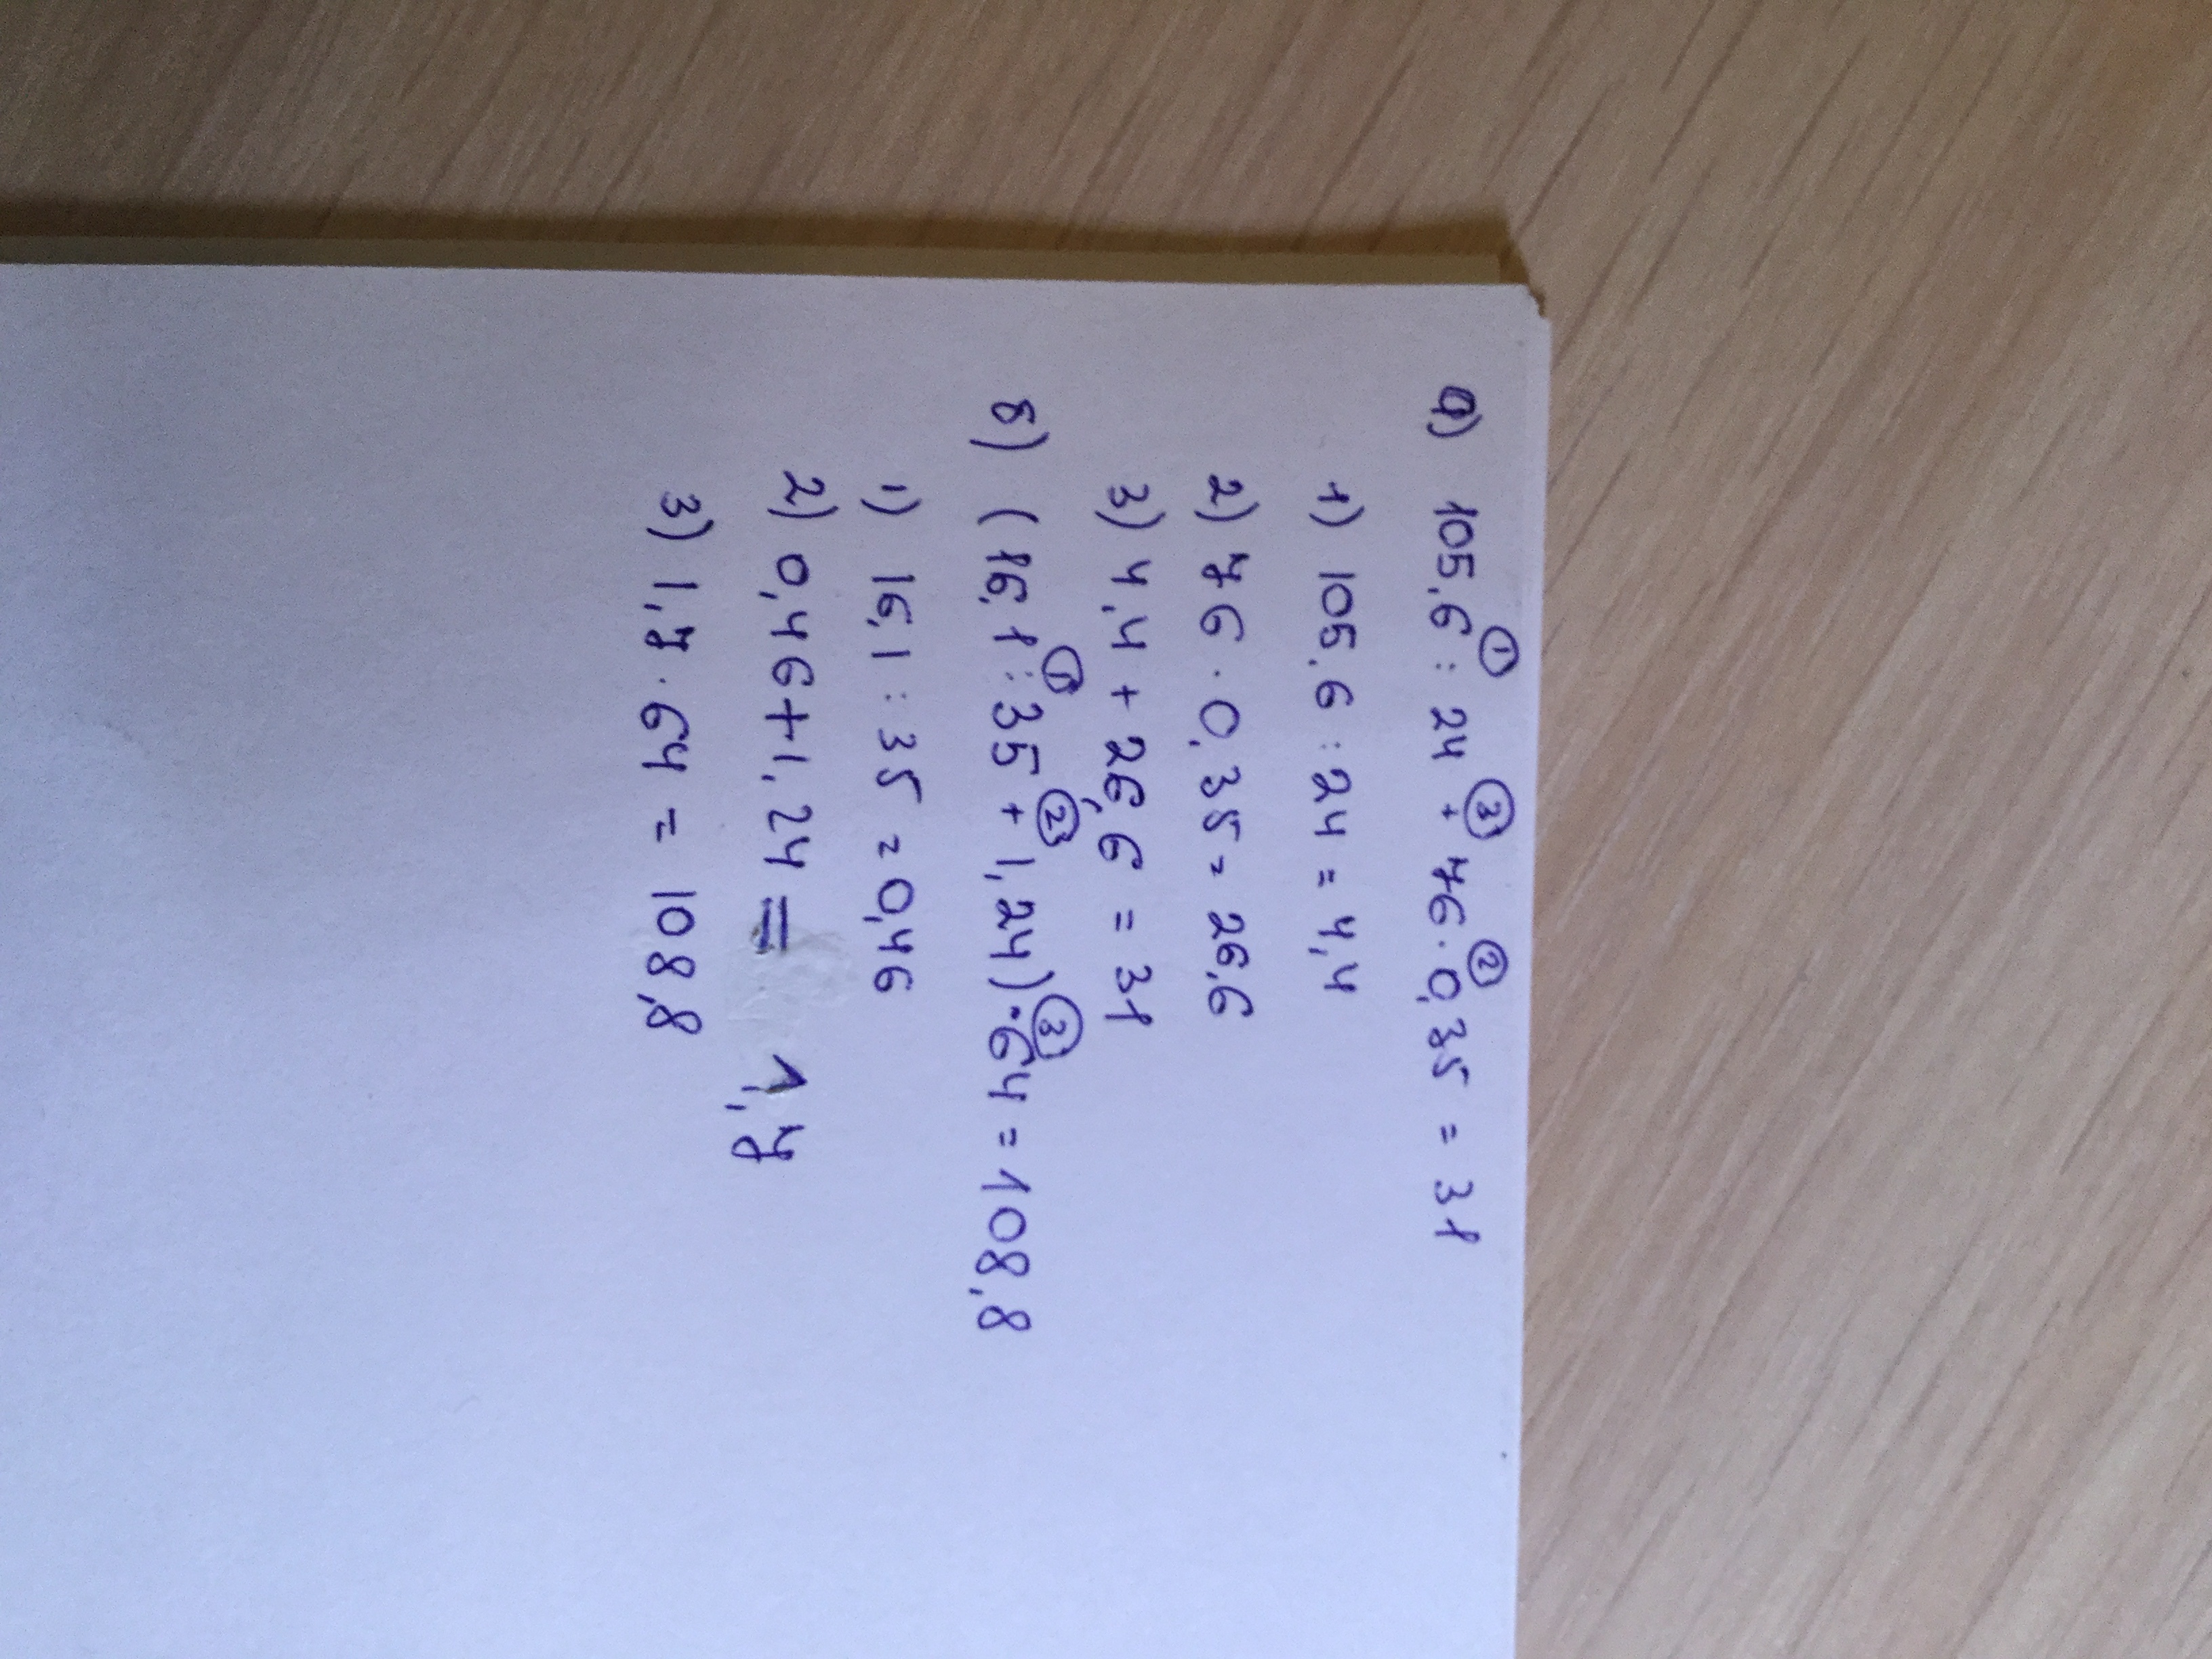 а) 105,6 : 24 + 76 · 0,35 = 31
① ③ ②
1) 105,6 : 24 = 4,4
2) 76 · 0,35 = 26,6
3) 4,4 + 26,6 = 31
б) (16,1 : 35 + 1,24) · 64 = 108,8
① ② ③
1) 16,1 : 35 = 0,46
2) 0,46 + 1,24 = 1,7
3) 1,7 · 64 = 108,8